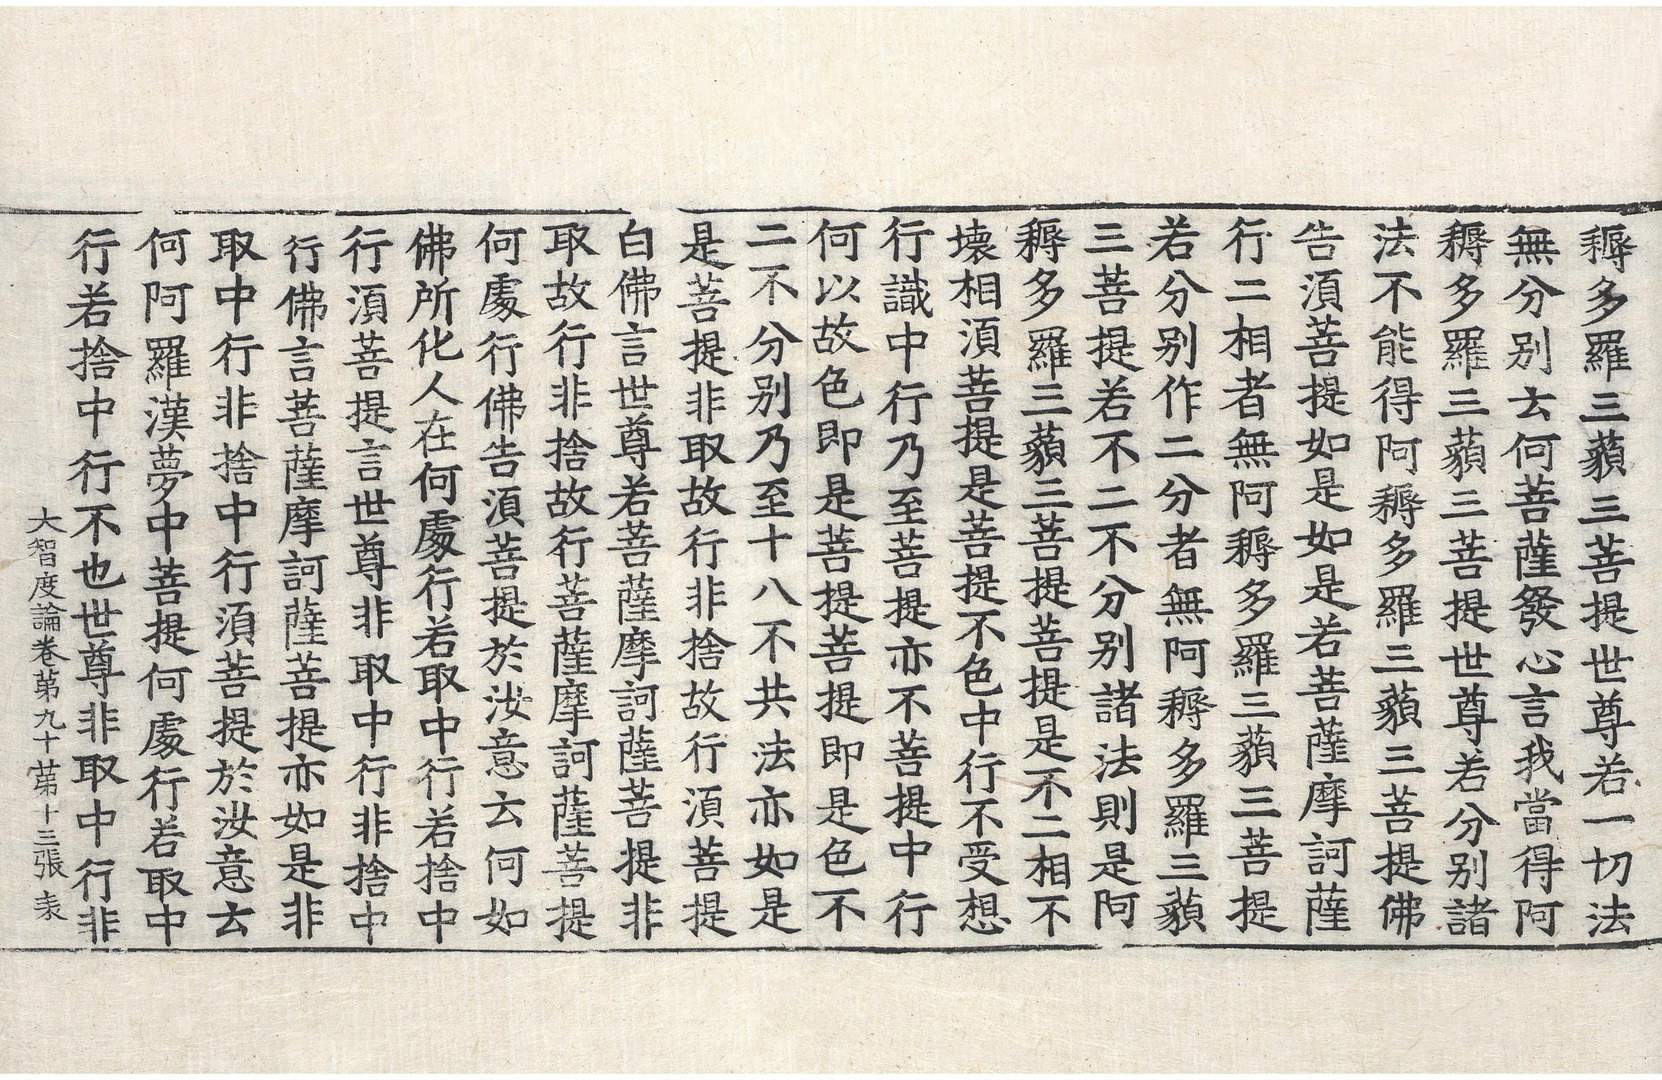 耨多羅三藐三菩提世尊若一切法
無分別云何菩薩發心言我當得阿
耨多羅三藐三菩提世尊若分別諸
法不能得阿耨多羅三藐三菩提佛
告須菩提如是如是若菩薩摩訶薩
行二相者無阿耨多羅三藐三菩提
若分別作二分者無阿耨多羅三藐
三菩提若不二不分別諸法則是阿
耨多羅三藐三菩提菩提是不二相不
壞相須菩提是菩提不色中行不受想
行識中行乃至菩提亦不菩提中行
何以故色即是菩提菩提即是色不
二不分別乃至十八不共法亦如是
是菩提非取故行非捨故行須菩提
白佛言世尊若菩薩摩訶薩菩提非
取故行非捨故行菩薩摩訶薩菩提
何處行佛告須菩提於汝意云何如
佛所化人在何處行若取中行若捨中
行須菩提言世尊非取中行非捨中
行佛言菩薩摩訶薩菩提亦如是非
取中行非捨中行須菩提於汝意云
何阿羅漢夢中菩提何處行若取中
行若捨中行不也世尊非取中行非
大智度論卷第九十 第十三張 表